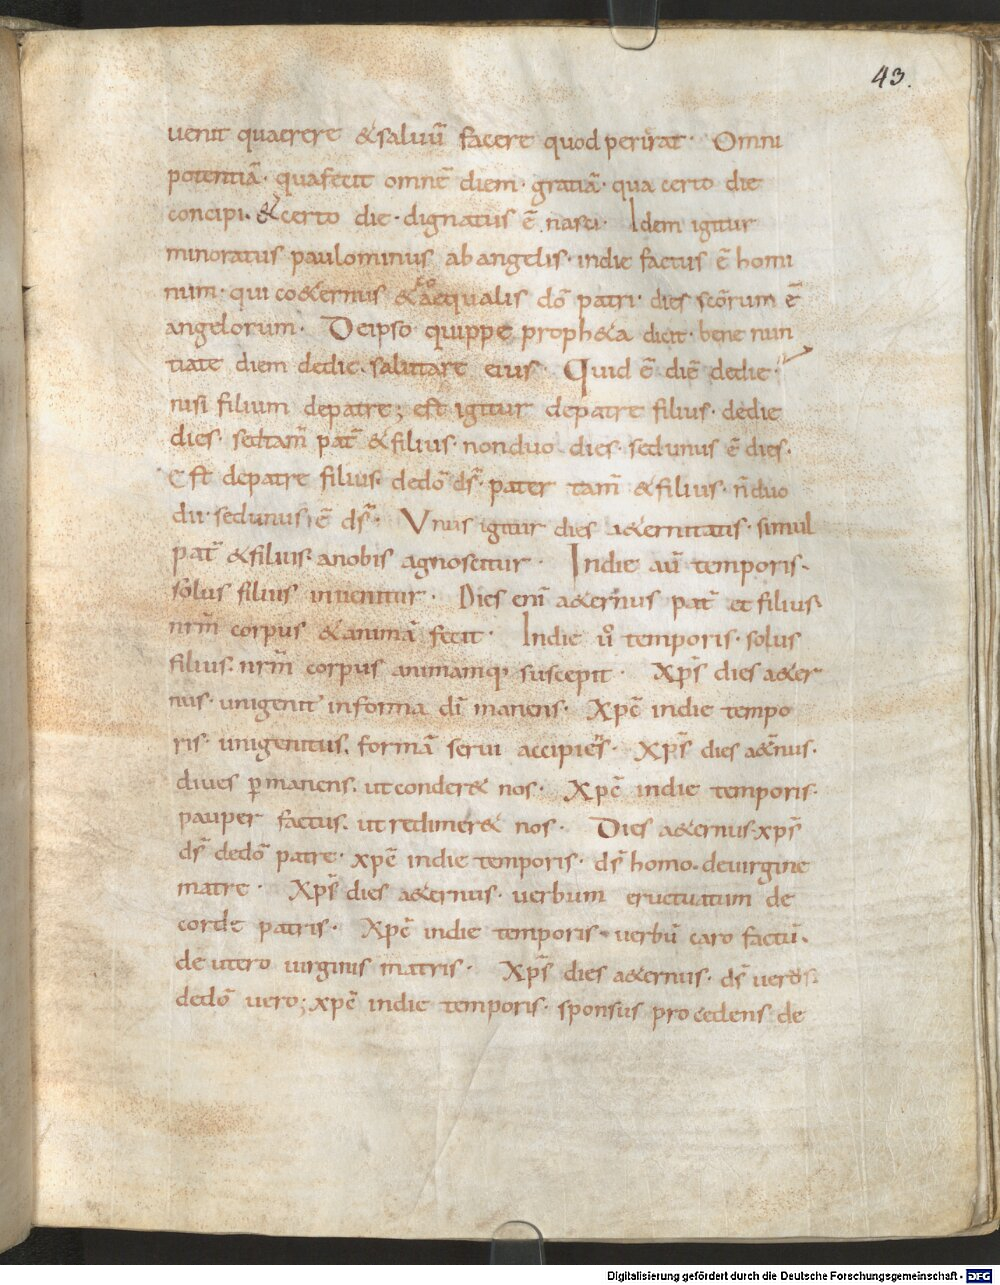 43.
uenit quaerere &saluū facere quod perirat· Omni
potentiā· quafecit omnē diem· gratiā· qua certo die
concipi· &certo die· dignatus ē nasci· Idem igitur
minoratus paulominus abangelis· indie factus ē homi
num· qui co&ernus &aequalis dō patri· dies scōrum ē
angelorum· Deipso quippe proph&a dicit· bene nun
tiate diem dedie· salutare eius· Quid ē diē dedie·
nisi filium depatre; est igitur depatre filius· dedie
dies· sedtam̄ pat̄ &filius· nonduo dies· sedunus ē dies·
Est depatre filius· dedō ds̄· pater tam̄ &filius· n̄duo
dii· sedunus ē ds̄· Vnus igitur dies a&ernitatis· simul
pat̄ &filius· anobis agnoscitur· Indie aū temporis·
solus filius inuenitur· Dies enī a&ernus pat̄ et filius·
nrm̄ corpus &animā fecit· Indie ū temporis· solus
filius· nrm̄ corpus animamq; suscepit· Xps̄ dies a&er
nus· unigenit' informa dī manens· Xpc̄ indie tempo
ris· unigenitus· formā serui accipiens· Xps̄ dies a&n̄us·
diues ꝑmanens· utconder& nos· Xpc̄ indie temporis·
pauper factus· utredimer& nos· Dies a&ernus·xps̄
ds̄ dedō patre· xpc̄ indie temporis· ds̄ homo· deuirgine
matre· Xps̄ dies a&ernus· uerbum eructuatum de
corde patris· Xpc̄ indie temporis· uerbū caro factū·
de utero uirginis matris· Xps̄ dies a&ernus· ds̄ uerus·
dedō uero; xpc̄ indie temporis· sponsus procedens de
Digitalisierung gefördert durch die Deutsche Forschungsgemeinschaft - DFG